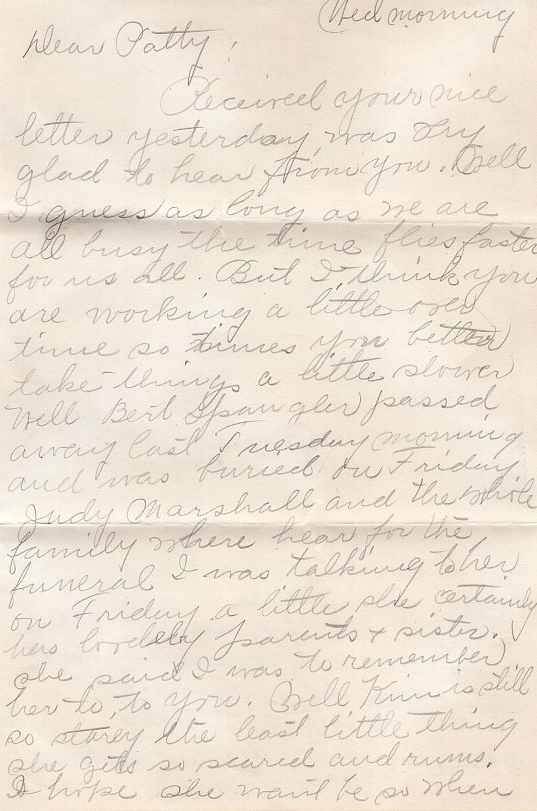 Wed morning
Dear Patty,
Received your nice
letter yesterday, was Bry
glad to hear from you. Well
I guess as long as we are
all busy the time flies faster
for us all. But I think you
are working a little over
time so times you better
take things a little slower
Well Bert Spangler passed
away last Tuesday morning
and was buried on Friday
Judy Marshall and the whole
family where hear for the
funeral I was talking to her
on Friday a little she certainly
has lovely parents & sister.
she said I was to remember
her to, to you. Well Kim is still
so starey the least little thing
she gets so scared and runs.
I hope she wan't be so when